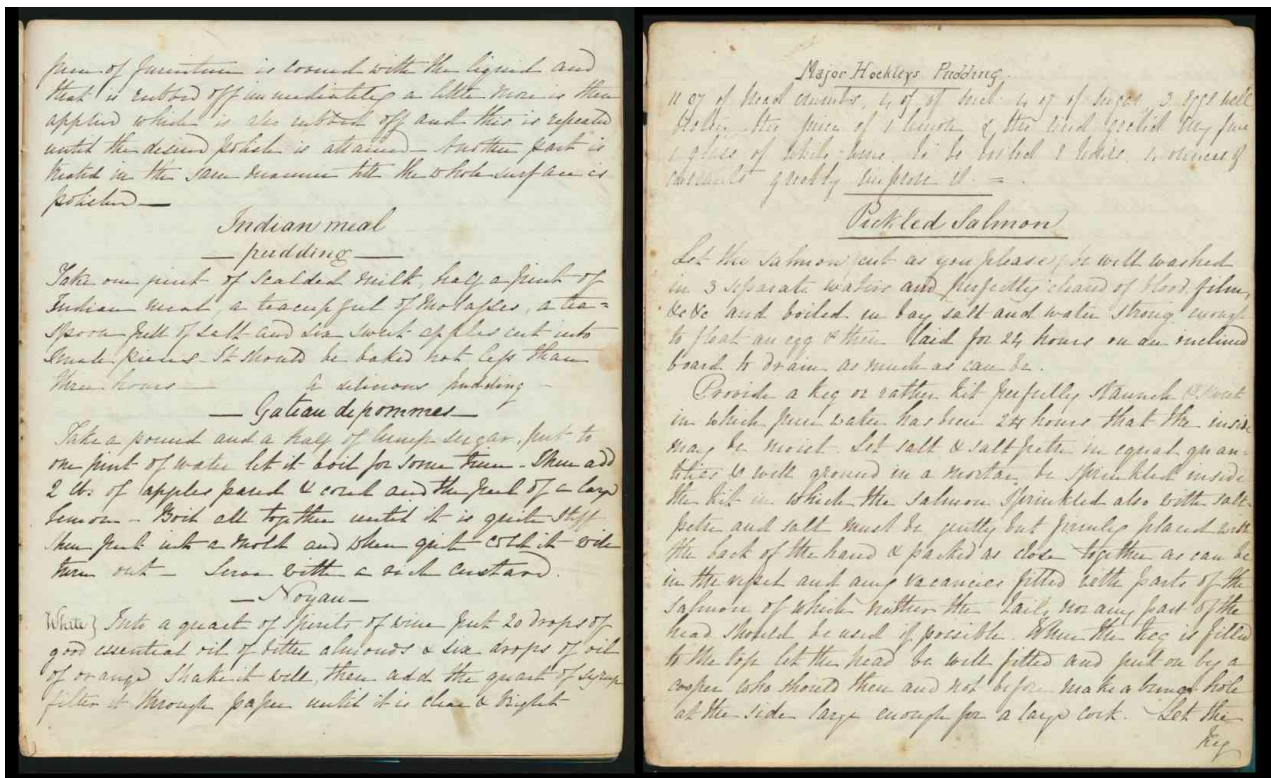 piece of furniture is covered with the liquid and
that is rubbed off immediately a little more is then
applied which is also rubbed off and this is repeated
until the desired polish is attained – Another part is
treated in the same manner till the whole surface is
polished —
Indian meal
— pudding —
Take one pint of scalded milk, half a pint of
Indian meal, a teacupful of Molasses, a tea=
spoon full of salt and six sweet apples cut into
small pieces – It should be baked not less than
three hours — A delicious pudding –
— Gateau de pommes —
Take a pound and a half of lump sugar, put to
one pint of water let it boil for some time – Then add
2 lbs of apples pared & cored and the peel of a large
lemon – Boil all together until it is quite stiff
then put into a mold and when quite cold it will
turn out – Serve with a rich custard.
— Noyau —
White} Into a quart of spirits of wine put 20 drops of
good essential oil of bitter almonds & six drops of oil
of orange shake it well, then add the quart of syrup
filter it through paper until it is clear & bright
Major Hockleys Pudding.
11 oz of bread crumbs, 4 oz of suet 4 oz of sugar, 3 eggs well
beaten, the juice of 1 lemon & the rind grated very fine
1 glass of white wine to be boiled 2 hours. 4 ounces of
currants greatly improve it =.
Pickled Salmon
Let the salmon (cut as you please) be well washed
in 3 separate waters and perfectly cleared of blood, film,
&c &c and boiled in bay salt and water strong enough
to float an egg & then laid for 24 hours on an inclined
board to drain as much as can be.
Provide a keg or rather kit perfectly staunch & sweet
in which pure water has been 24 hours that the inside
may be moist. Let salt & saltpetre in equal quan-
tities & well ground in a mortar, be sprinkled inside
the kit in which the salmon sprinkled also with salt-
petre and salt must be gently but firmly placed with
the back of the hand & packed as close together as can be
in the vessel and any vacancies fitted with parts of the
salmon of which neither the tail, nor any part of the
head should be used if possible. When the keg is filled
to the top let the head be well fitted and put on by a
cooper who should then and not before make a bung hole
at the side large enough for a large cork. Let the
keg